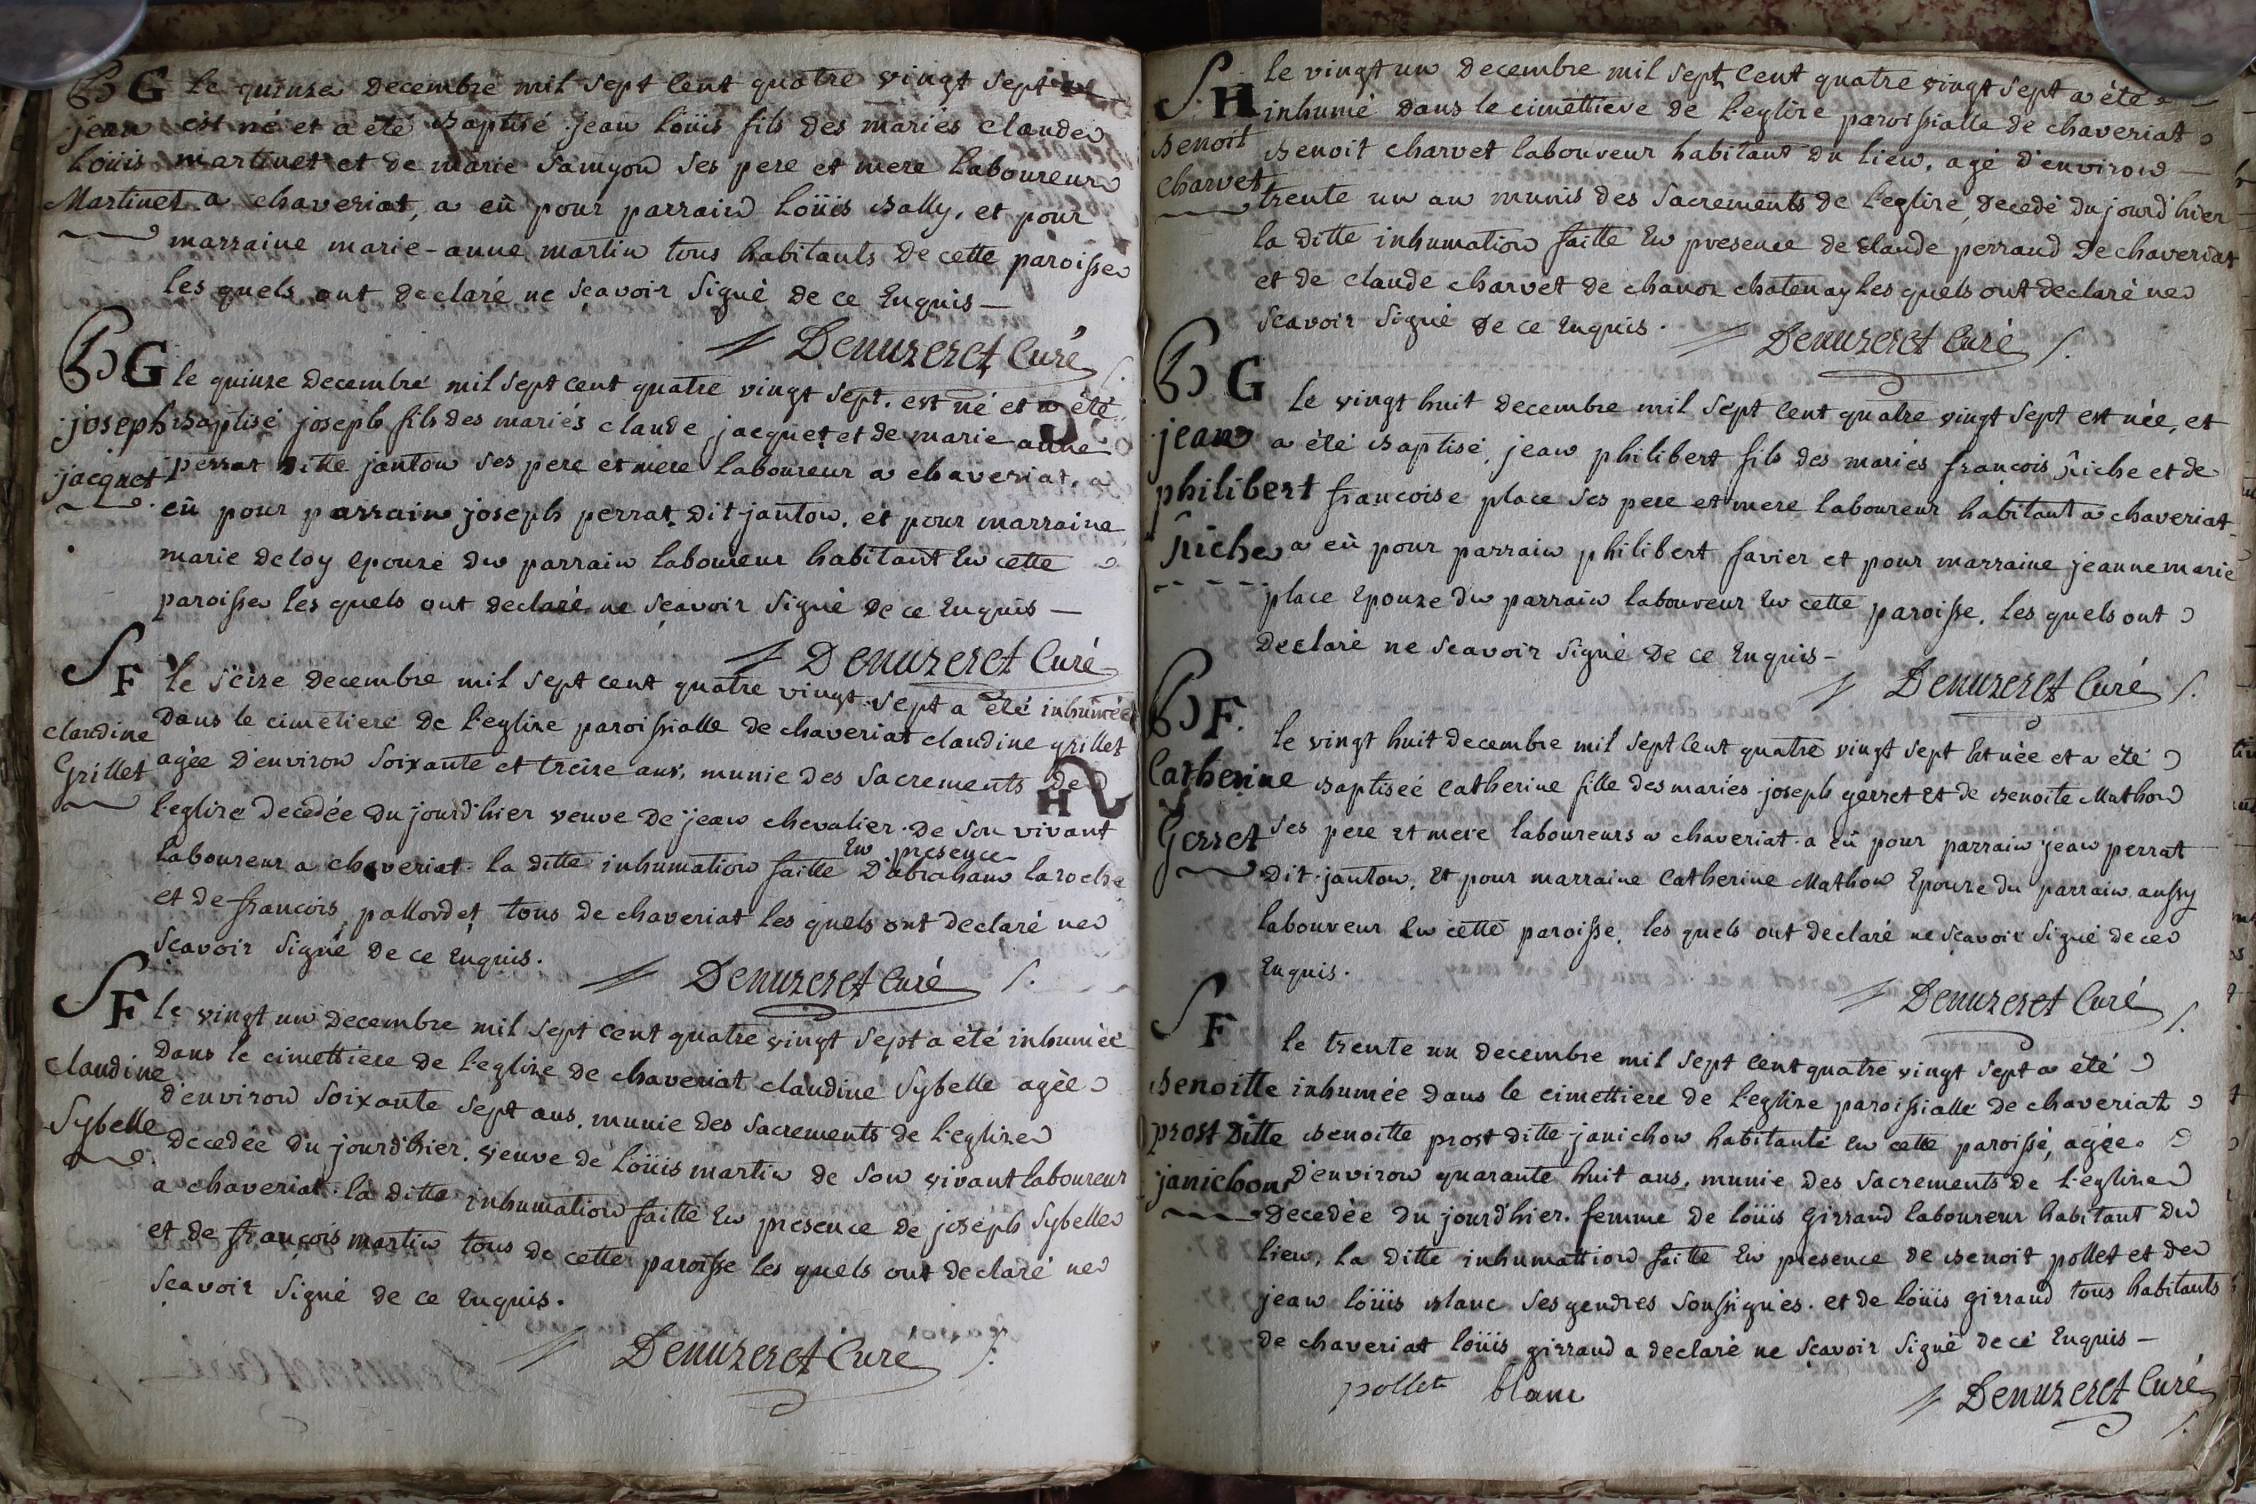 BG
jean
Loüis
Martinet
le quinze decembre mil sept cent quatre vingt sept
est né et a été Baptisé jean Loüis fils des mariés claude
martinet et de marie Samyon ses pere et mere laboureur
a chaveriat, a eû pour parrain Loüis Bally, et pour
marraine marie-anne martin tous habitants de cette paroisse
les quels ont declaré ne sçavoir signé de ce Enquis —
Denuzeret Curé
BG
joseph
jacquet
le quinze decembre mil sept cent quatre vingt sept. est né et a été
Baptisé joseph fils des mariés claude jacquet et de marie anne
perrat ditte janton ses pere et mere laboureur a chaveriat, a
eû pour parrain joseph perrat dit janton, et pour marraine
marie deloy epouze du parrain laboureur habitant En cette
paroisse les quels ont declaré ne sçavoir signé de ce Enquis —
Denuzeret Curé
SF
claudine
Grillet
le seize decembre mil sept cent quatre vingt sept a été inhumée
dans le cimetiere de l'eglize paroissialle de chaveriat claudine grillet
agée d'environ soixante et treize ans, munie des sacrements de
l'eglize decedée du jourd'hier veuve de jean chevalier de son vivant
En presence
laboureur a chaveriat la ditte inhumation faitte D'abraham laroche
et de françois pallordet tous de chaveriat les quels ont declaré ne
sçavoir signé de ce Enquis.
Denuzeret Curé
SF
claudine
Sybelle
le vingt un decembre mil sept cent quatre vingt sept a été inhumée
dans le cimettiere de l'eglize de chaveriat claudine Sybelle agée
d'environ soixante sept ans, munie des sacrements de l'eglize
decedée du jourd'hier, veuve de Loüis martin de son vivant laboureur
a chaveriat la ditte inhumation faitte En presence de joseph Sybelle
et de françois martin tous de cette paroisse les quels ont declaré ne
sçavoir signé de ce Enquis.
Denuzeret Curé
SH
Benoit
Charvet
le vingt un decembre mil sept cent quatre vingt sept a été
inhumé dans le cimettiere de l'eglize paroissialle de chaveriat
Benoit charvet laboureur habitant du lieu, agé d'environ
trente un an munis des Sacrements de l'eglize, decedé du jourd'hier
la ditte inhumation faitte En presence de claude perraud de chaveriat
et de claude charvet de chanoz chatenay les quels ont declaré ne
scavoir signé de ce Enquis.
Denuzeret Curé
BG
jean
philibert
Riche
le vingt huit decembre mil sept cent quatre vingt sept est née, et
a été Baptisé, jean philibert fils des mariés françois Riche et de
françoise place ses pere et mere laboureur habitant a chaveriat
a eû pour parrain philibert favier et pour marraine jeanne marie
place Epouze du parrain laboureur En cette paroisse, les quels ont
declaré ne scavoir signé de ce Enquis —
Denuzeret Curé
BF.
Catherine
Gerret
le vingt huit decembre mil sept cent quatre vingt sept Est née et a été
Baptiseé catherine fille des mariés joseph gerret Et de Benoite Mathon
ses pere Et mere laboureurs a chaveriat. a eû pour parrain jean perrat
dit janton, Et pour marraine Catherine Mathon Epouze du parrain aussy
laboureur En cette paroisse, les quels ont declaré ne sçavoir signé de ce
Enquis.
Denuzeret Curé
SF
Benoitte
prost Ditte
janichon
le trente un decembre mil sept cent quatre vingt sept a été
inhumée dans le cimettiere de l'eglize paroissialle de chaveriat
Benoitte prost ditte janichon habitante En cette paroisse, agée
d'environ quarante huit ans, munie des sacrements de l'eglize
Decedée du jourd'hier. femme de loüis Girraud laboureur habitant du
lieu, la ditte inhumattion faitte En presence de Benoit pollet et de
jean loüis Blanc ses gendres soussignés. et de loüis girraud tous habitants
de chaveriat loüis girraud a declaré ne sçavoir signé de ce Enquis —
pollet blanc
Denuzeret Curé